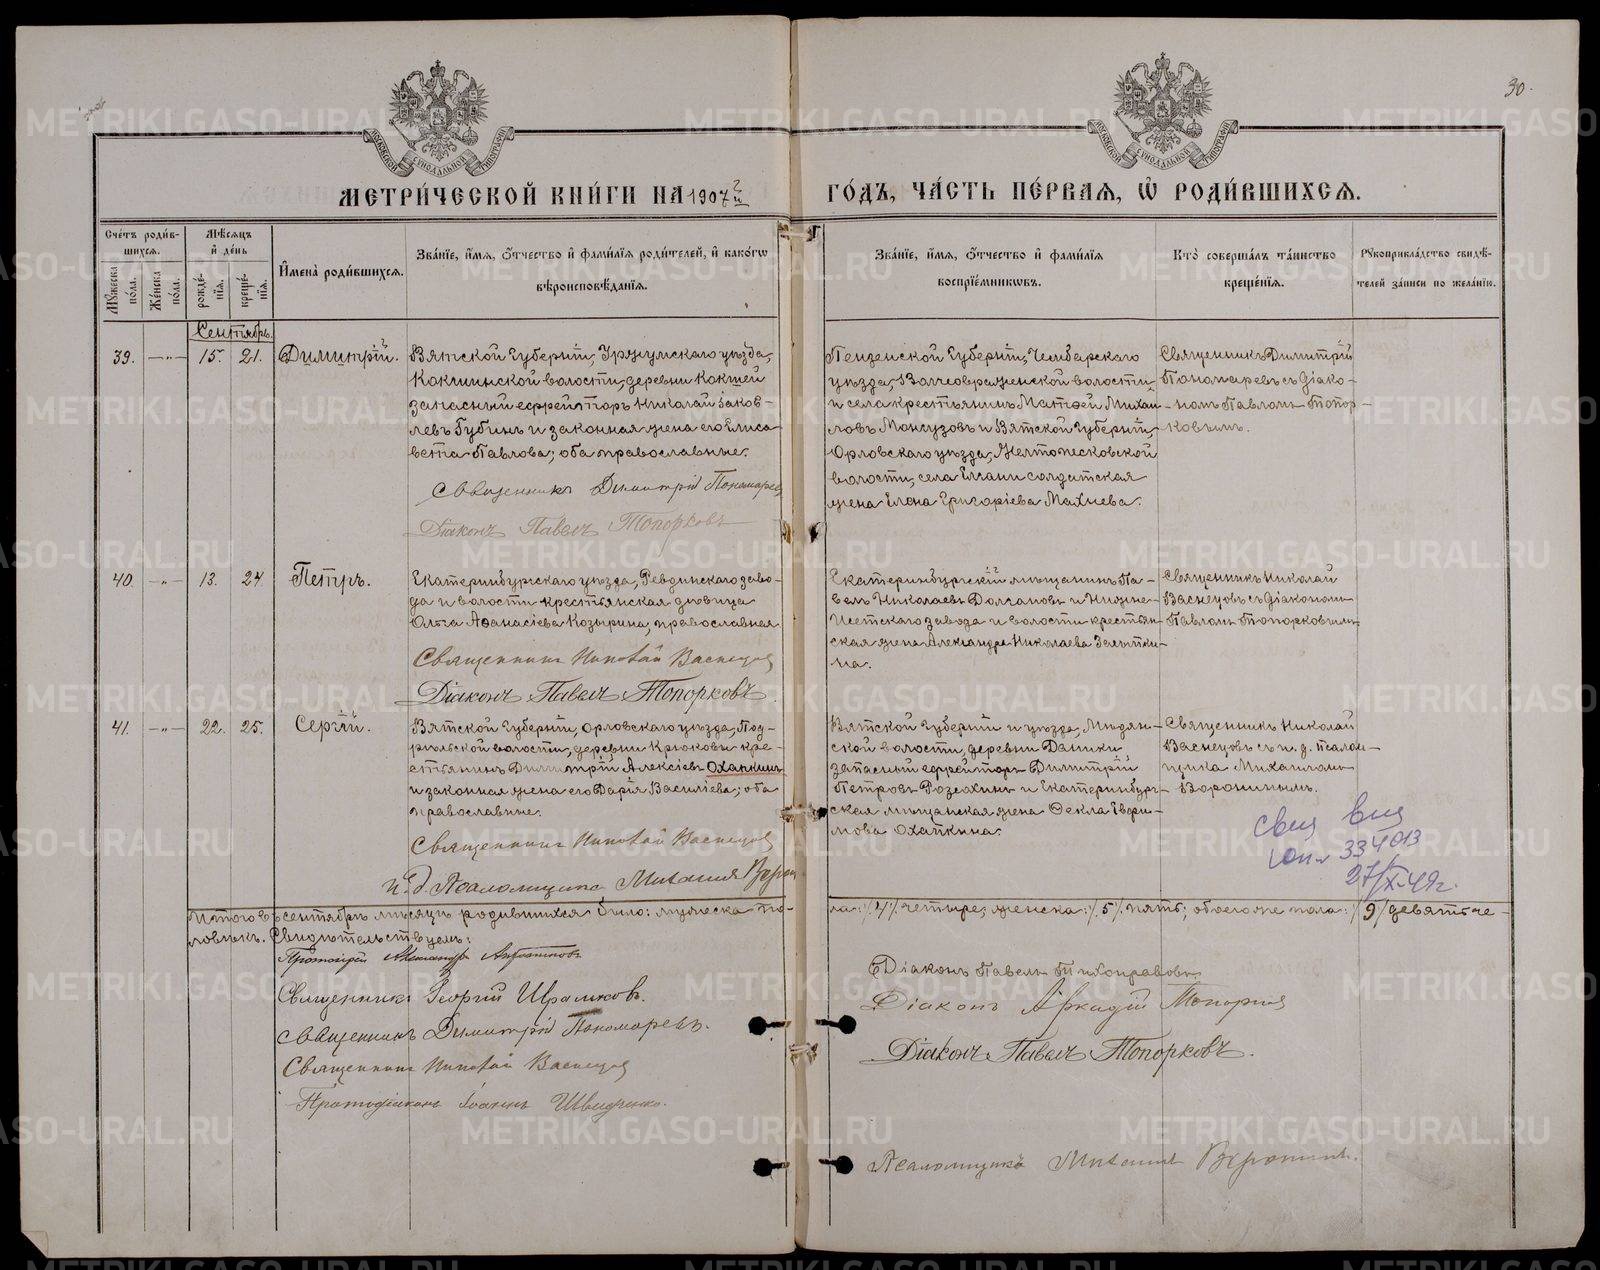 30.
МЕТРИЧЕСКОЙ КНИГИ НА 1907 й ГОДЪ, ЧАСТЬ ПЕРВАЯ, Ѡ РОДИВШИХСЯ.
Счетъ родившихся.
Мужеска пола.
Женска пола.
Мѣсяцъ и день
рожденія.
крещенія.
Имена родившихся.
Званіе, имя, отчество и фамилія родителей, и какогѡ
вѣроисповѣданія.
Званіе, имя, отчество и фамилія
воспріемникѡвъ.
Кто совершалъ таинство
крещенія.
Рукоприкладство свидѣ-
телей записи по желанію.
Сентябрь.
39. —„— 15. 21. Димитрій.
Вятской Губерніи, Уржумскаго уѣзда,
Кокшинской волости, деревни Кокшей
запасный ефрейторъ Николай Іаков-
левъ Губинъ и законная жена его Елиса-
вета Павлова; оба православные.
Священникъ Димитрій Пономаревъ
Діаконъ Павелъ Топорковъ
Пензенской Губерніи, Чембарскаго
уѣзда, волости
и села крестьянинъ Матѳей Михаи-
ловъ и Вятской Губерніи,
Орловскаго уѣзда, Желтопесковской
волости, села солдатская
жена Елена Григоріева Махнева.
Священникъ Димитрій
Пономаревъ съ діако-
номъ Павломъ Топор-
ковымъ.
40. —„— 13. 24. Петръ.
Екатеринбургскаго уѣзда, Ревдинскаго заво-
да и волости крестьянская дѣвица
Ольга Аѳанасіева Козырина, православная
Священникъ Николай Васнецовъ
Діаконъ Павелъ Топорковъ.
Екатеринбургскій мѣщанинъ Па-
велъ Николаевъ Долгановъ и Нижне-
Исетскаго завода и волости крестьян-
ская жена Александра Николаева
на.
Священникъ Николай
Васнецовъ съ діакономъ
Павломъ Топорковымъ
41. —„— 22. 25. Сергій.
Вятской Губерніи, Орловскаго уѣзда, Под-
рѣльской волости, деревни Крюковы кре-
стьянинъ Димитрій Алексіевъ Охапкинъ
и законная жена его Дарія Василіева; оба
православные.
Священникъ Николай Васнецовъ
и. д. Псаломщика Михаилъ Ворон
Вятской Губерніи и уѣзда, Мидян-
ской волости, деревни
запасный ефрейторъ Димитрій
Петровъ и Екатеринбург-
ская мѣщанская жена Ѳекла
мова Охапкина.
Священникъ Николай
Васнецовъ съ и. д. псалом-
щика Михаиломъ
Воронинымъ.
27/X-49г.
Итого въ сентябрѣ мѣсяцѣ родившихся было: мужеска по-
ла: /4/ четыре, женска: /5/ пять; обоего же пола: /9/ девять че-
ловѣкъ. Свидѣтельствуемъ:
Протоіерей Александръ
Священникъ Георгій
Священникъ Димитрій Пономаревъ.
Священникъ Николай Васнецовъ
Протодіаконъ Іоаннъ
Діаконъ Павелъ
Діаконъ Аркадій
Діаконъ Павелъ Топорковъ.
Псаломщикъ Михаилъ Воронинъ.